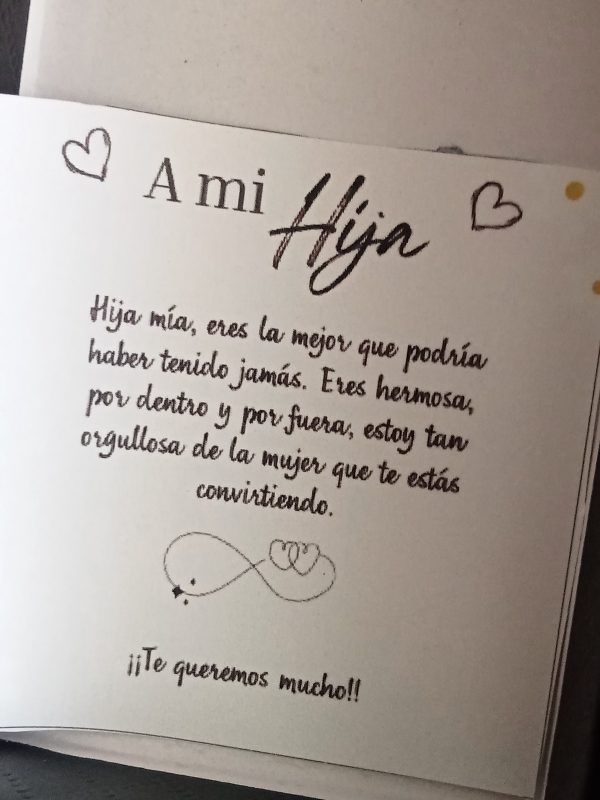 A mi Hija
Hija mía, eres la mejor que podría
haber tenido jamás. Eres hermosa,
por dentro y por fuera, estoy tan
orgullosa de la mujer que te estás
convirtiendo.
¡¡Te queremos mucho!!